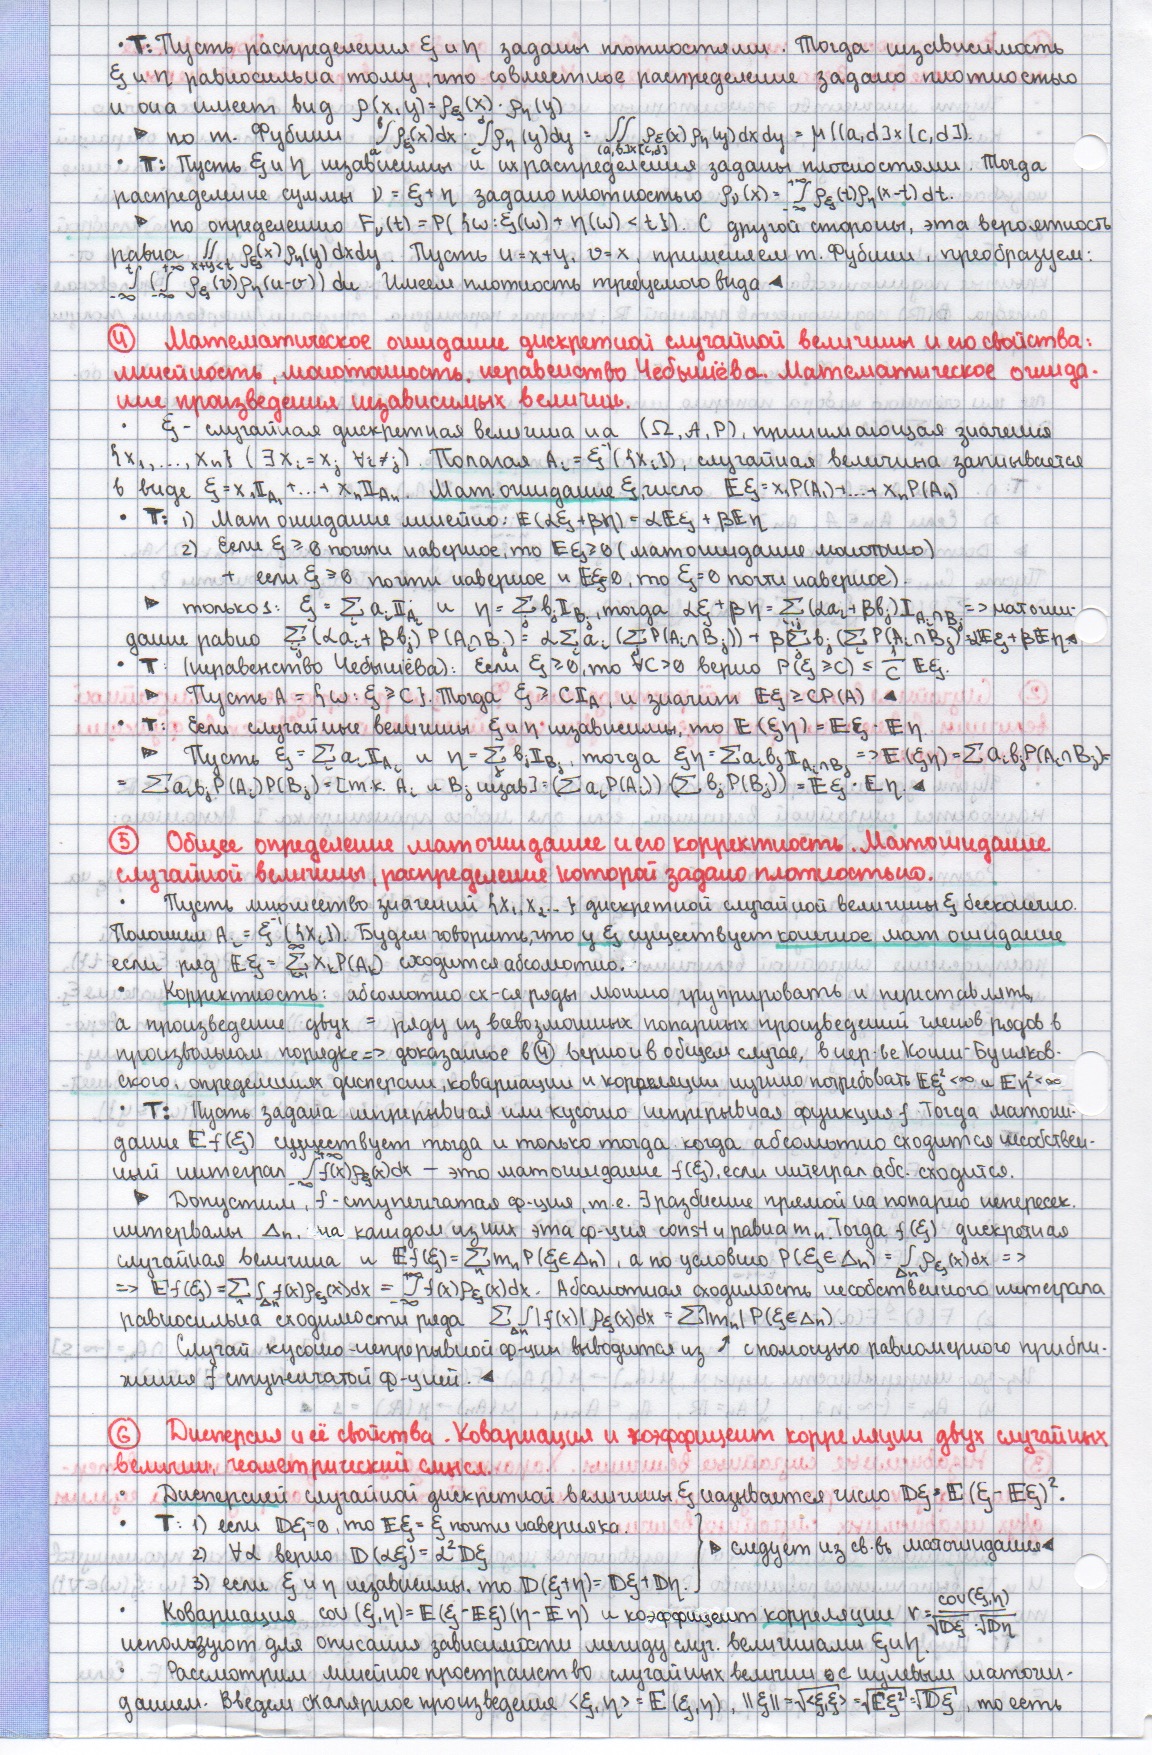 · Т: Пусть распределения ξ и η заданы плотностями. Тогда независимость
ξ и η равносильна тому, что совместное распределение задано плотностью
и она имеет вид ρ(x,y)=ρ_ξ(x)·ρ_η(y)
▶ по т. Фубини ∫_a^b ρ_ξ(x)dx · ∫_c^d ρ_η(y)dy = ∬_{[a,b]x[c,d]} ρ_ξ(x)ρ_η(y)dxdy = μ([a,d]x[c,d]).
· Т: Пусть ξ и η независимы и их распределения заданы плотностями. Тогда
распределение суммы ν = ξ+η задано плотностью ρ_ν(x)=∫_{-∞}^{+∞} ρ_ξ(t)ρ_η(x-t)dt.
▶ по определению F_ν(t)=P({ω: ξ(ω)+η(ω)<t}). С другой стороны, эта вероятность
равна ∬_{x+y<t} ρ_ξ(x)ρ_η(y)dxdy. Пусть u=x+y, v=x, применяем т. Фубини, преобразуем:
∫_{-∞}^t (∫_{-∞}^{+∞} ρ_ξ(v)ρ_η(u-v)) du Имеем плотность требуемого вида ◀
④ Математическое ожидание дискретной случайной величины и его свойства:
линейность, монотонность, неравенство Чебышёва. Математическое ожида-
ние произведения независимых величин.
· ξ - случайная дискретная величина на (Ω, A, P), принимающая значения
{x₁,...,xₙ} (∃ x_i=x_j ∀i≠j). Полагая A_i=ξ⁻¹({x_i}), случайная величина записывается
в виде ξ=x₁𝕀_{A₁}+...+xₙ𝕀_{Aₙ}. Мат. ожидание ξ число 𝔼ξ=x₁P(A₁)+...+xₙP(Aₙ)
· Т: 1) Мат ожидание линейно: 𝔼(αξ+βη)=α𝔼ξ+β𝔼η
2) Если ξ⩾0 почти наверное, то 𝔼ξ⩾0 (матожидание монотонно)
+ если ξ⩾0 почти наверное и 𝔼ξ=0, то ξ=0 почти наверное).
▶ только 1: ξ=∑_i a_i𝕀_{A_i} и η=∑_j b_j𝕀_{B_j}, тогда αξ+βη=∑_{i,j}(αa_i+βb_j)𝕀_{A_i∩B_j} => матожи-
дание равно ∑_{i,j}(αa_i+βb_j)P(A_i∩B_j)=α∑_i a_i(∑_j P(A_i∩B_j))+β∑_j b_j(∑_i P(A_i∩B_j)=α𝔼ξ+β𝔼η◀
· Т: (неравенство Чебышёва): Если ξ⩾0, то ∀C>0 верно P(ξ⩾C) ≤ 1/C 𝔼ξ.
▶ Пусть A={ω: ξ⩾C}. Тогда ξ⩾C𝕀_A, и значит 𝔼ξ⩾CP(A) ◀
· Т: Если случайные величины ξ и η независимы, то 𝔼(ξη)=𝔼ξ·𝔼η.
▶ Пусть ξ=∑_i a_i𝕀_{A_i} и η=∑_j b_j𝕀_{B_j}, тогда ξη=∑a_ib_j𝕀_{A_i∩B_j} => 𝔼(ξη)=∑a_ib_jP(A_i∩B_j)=
= ∑a_ib_jP(A_i)P(B_j)=[т.к. A_i и B_j незав]=(∑a_iP(A_i))(∑b_jP(B_j))=𝔼ξ·𝔼η.◀
⑤ Общее определение матожидание и его корректность. Матожидание
случайной величины, распределение которой задано плотностью.
· Пусть множество значений {x₁,x₂...} дискретной случайной величины ξ бесконечно.
Положим A_i=ξ⁻¹({x_i}). Будем говорить, что у ξ существует конечное мат ожидание
если ряд 𝔼ξ=∑_{k=1}^∞ x_kP(A_k) сходится абсолютно.
· Корректность: абсолютно сх-ся ряды можно группировать и переставлять,
а произведение двух = ряду из всевозможных попарных произведений членов рядов в
произвольном порядке => доказанное в ④ верно и в общем случае, в нер-ве Коши-Буняков-
ского, определениях дисперсии, ковариации и корреляции нужно потребовать 𝔼ξ²<∞ и 𝔼η²<∞
· Т: Пусть задана непрерывная или кусочно непрерывная функция f. Тогда матожи-
дание 𝔼f(ξ) существует тогда и только тогда, когда абсолютно сходится несобствен-
ный интеграл ∫_{-∞}^{+∞} f(x)ρ_ξ(x)dx — это матожидание f(ξ), если интеграл абс. сходится.
▶ Допустим, f-ступенчатая ф-ция, т.е. ∃ разбиение прямой на попарно непересек.
интервалы Δₙ, на каждом из них эта ф-ция const и равна mₙ. Тогда f(ξ) дискретная
случайная величина и 𝔼f(ξ)=∑_n mₙP(ξ∈Δₙ), а по условию P(ξ∈Δₙ)=∫_{Δₙ} ρ_ξ(x)dx =>
=> 𝔼f(ξ)=∑_n ∫_{Δₙ} f(x)ρ_ξ(x)dx = ∫_{-∞}^{+∞} f(x)ρ_ξ(x)dx. Абсолютная сходимость несобственного интеграла
равносильна сходимости ряда ∑∫_{Δₙ} |f(x)|ρ_ξ(x)dx=∑|mₙ|P(ξ∈Δₙ)
Случай кусочно-непрерывной ф-ции выводится из ↗ с помощью равномерного прибли-
жения f ступенчатой ф-цией. ◀
⑥ Дисперсия и её свойства. Ковариация и коэффициент корреляции двух случайных
величин, геометрический смысл.
· Дисперсией случайной дискретной величины ξ называется число 𝔻ξ=𝔼(ξ-𝔼ξ)².
· Т: 1) если 𝔻ξ=0, то 𝔼ξ=ξ почти наверняка.
2) ∀α верно 𝔻(αξ)=α²𝔻ξ
▶ следует из св-в матожидания◀
3) если ξ и η независимы, то 𝔻(ξ+η)=𝔻ξ+𝔻η.
· Ковариация cov(ξ,η)=𝔼(ξ-𝔼ξ)(η-𝔼η) и коэффицент корреляции r=cov(ξ,η)/(√𝔻ξ·√𝔻η)
используют для описания зависимости между случ. величинами ξ и η.
· Рассмотрим линейное пространство случайных величин с нулевым матожи-
данием. Введем скалярное произведения <ξ,η>=𝔼(ξ,η), ||ξ||=√<ξ,ξ>=√𝔼ξ²=√𝔻ξ, то есть